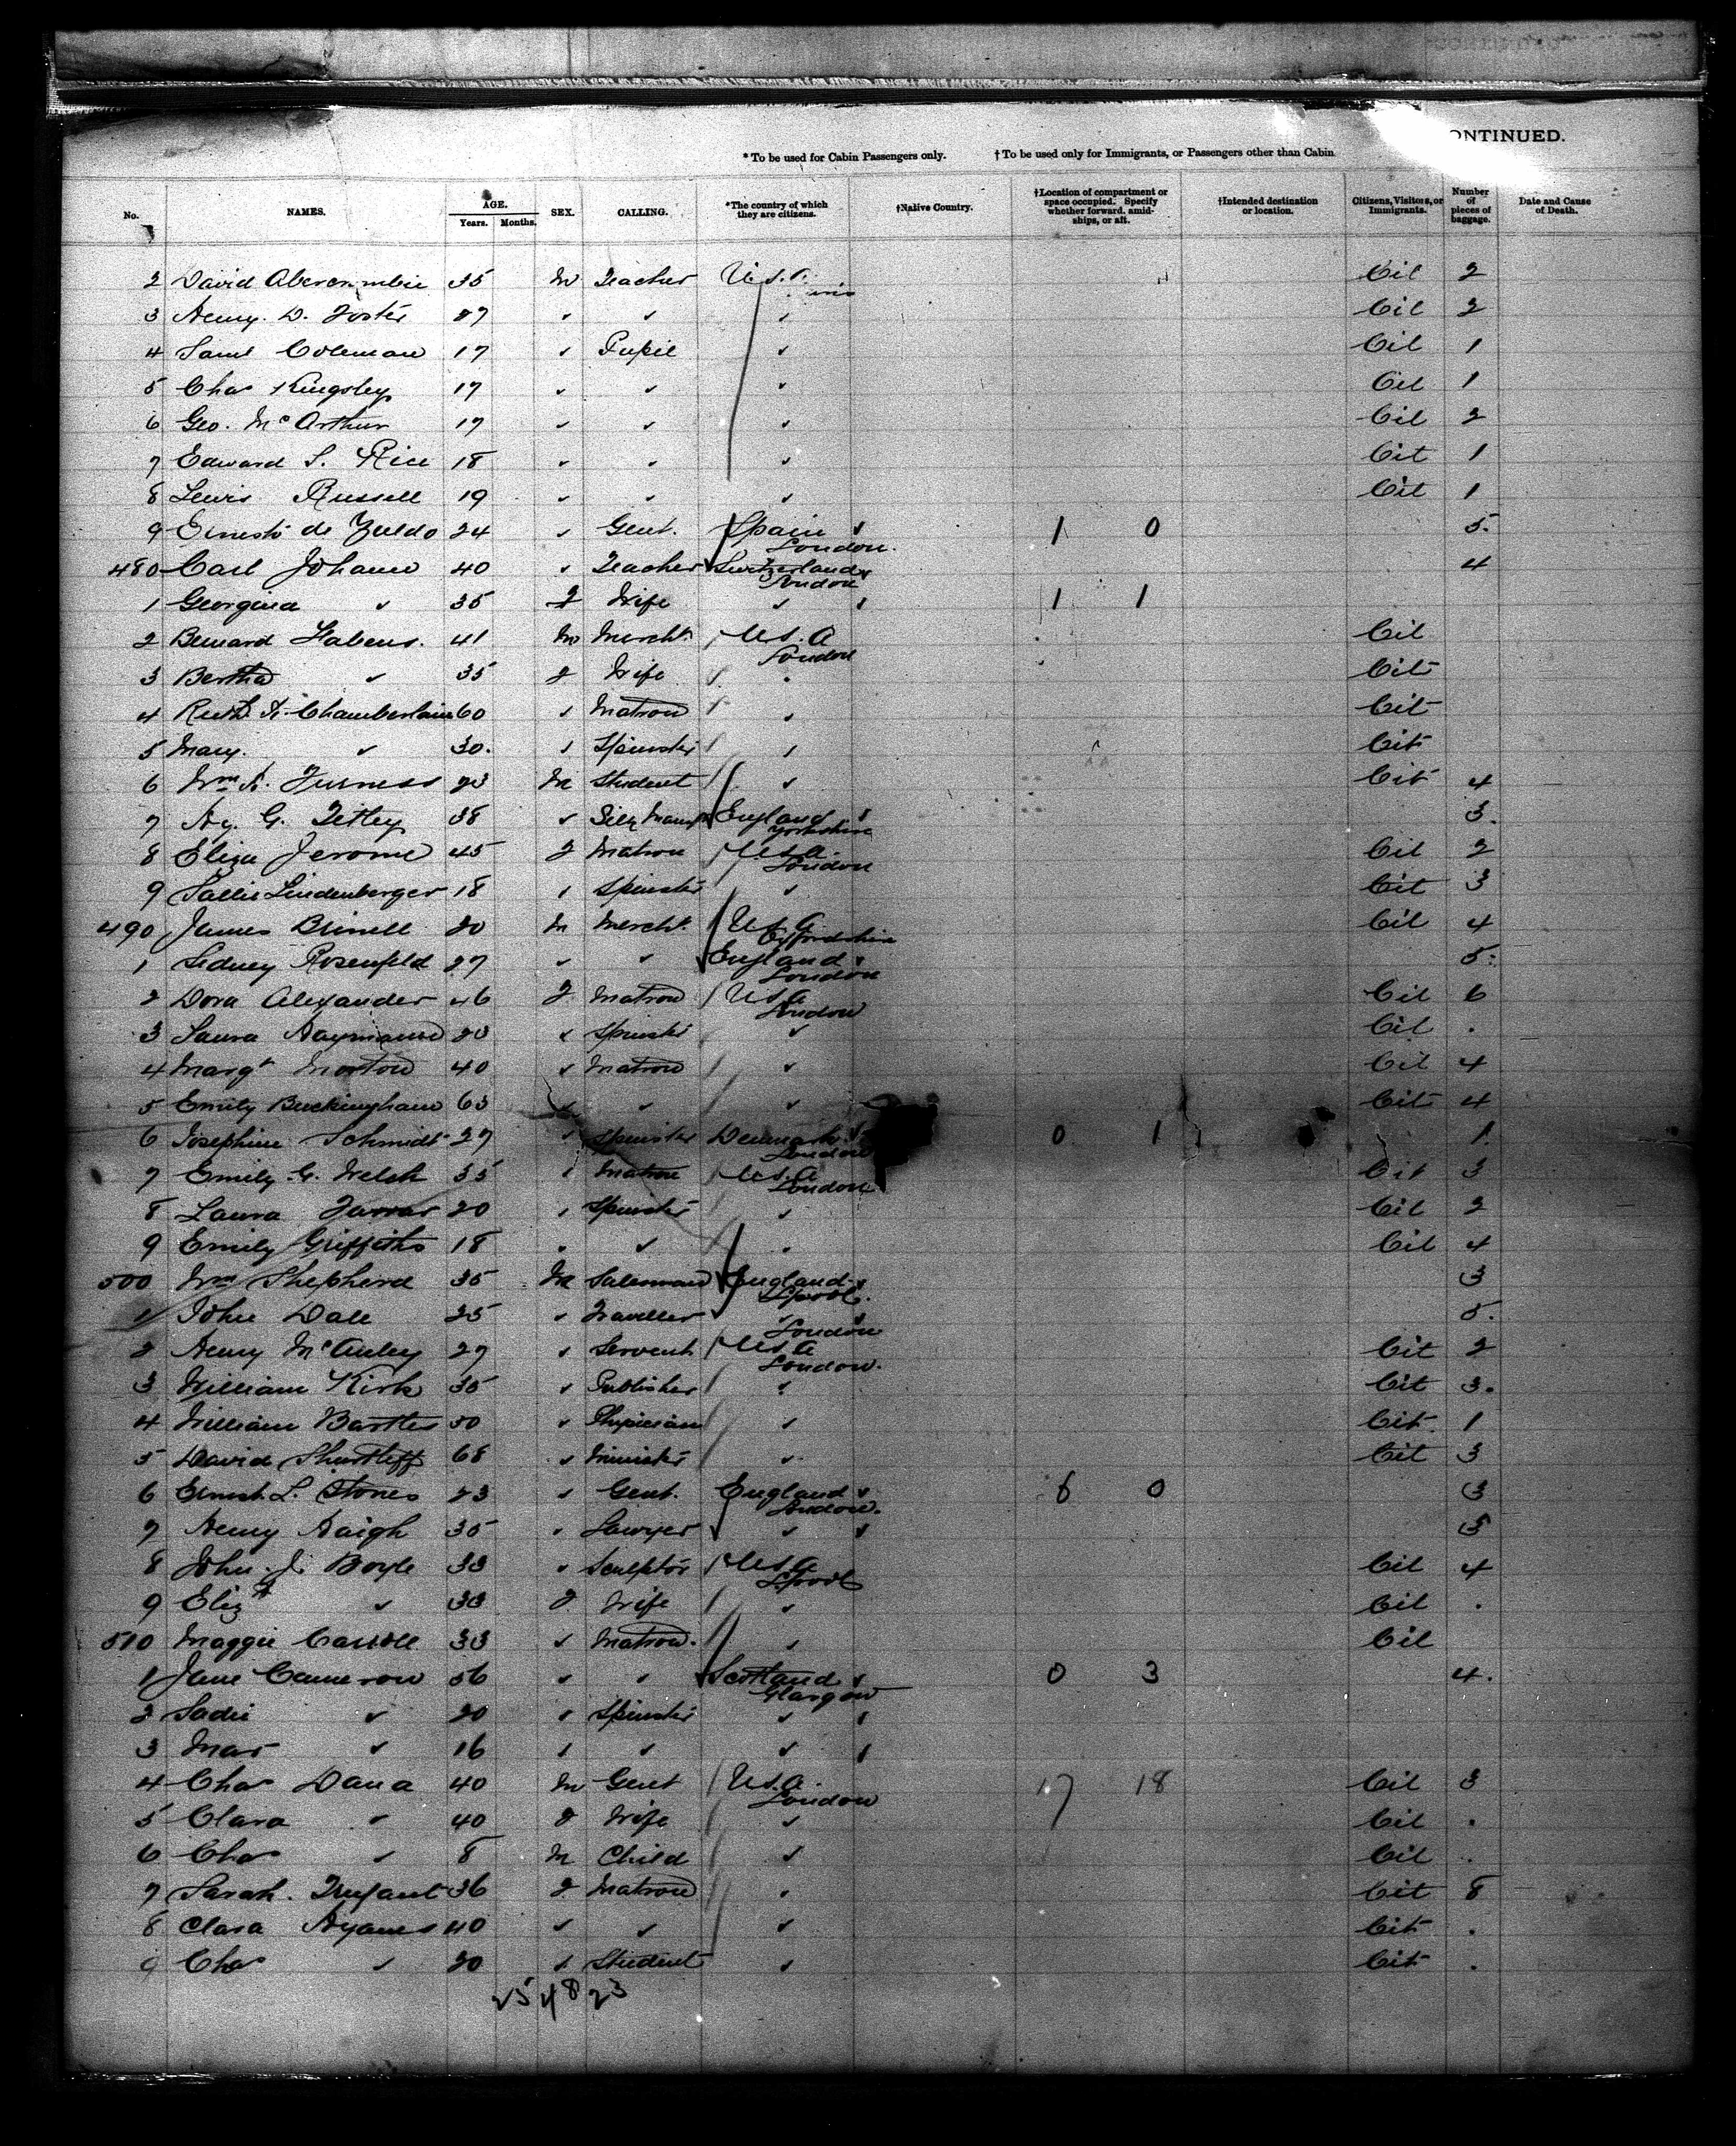 ONTINUED.
* To be used for Cabin Passengers only. † To be used only for Immigrants, or Passengers other than Cabin
No. NAMES. AGE. Years. Months. SEX. CALLING. *The country of which they are citizens. †Native Country. †Location of compartment or space occupied. Specify whether forward, amidships, or aft. †Intended destination or location. Citizens, Visitors, or Immigrants. Number of pieces of baggage. Date and Cause of Death.
2 David Abercrombie 35 M Teacher U.S.A. Cit 2
3 Henry. D. Foster 27 " " " Cit 2
4 Saml Coleman 17 " Pupil " Cit 1
5 Chas Kingsley 17 " " " Cit 1
6 Geo. McArthur 17 " " " Cit 2
7 Edward S. Rice 18 " " " Cit 1
8 Lewis Russell 19 " " " Cit 1
9 Ernesto de 24 " Gent. Spain London. 1 0 5.
480 Carl Johann 40 " Teacher Switzerland London 4
1 Georgina " 35 F Wife " 1 1
2 Bernard 41 M Mercht U.S.A London Cit
3 Bertha " 35 F Wife " Cit
4 Chamberlain 60 " Matron " Cit
5 Mary. " 30. " Spinster " Cit
6 Wm Furness 23 M Student " Cit 4
7 Hy. G. Tetley 38 " Silk England Yorkshire 3.
8 Eliza Jerome 45 F Matron U.S.A. London Cit 2
9 Sallie Lindenberger 18 " Spinster " Cit 3
490 James 20 M Mercht. U.S.A Cit 4
1 Sidney Rosenfeld 27 " " England London 5.
2 Dora Alexander 46 F Matron U.S.A London Cit 6
3 Laura 20 " Spinster " Cit .
4 Margt Morton 40 " Matron " Cit 4
5 Emily Buckingham 63 " " " Cit 4
6 Josephine Schmidt 27 " Spinster Denmark London 0 1 1.
7 Emily. G. Welsh 35 " Matron U.S.A London Cit 3
8 Laura Farrar 20 " Spinster " Cit 2
9 Emily Griffiths 18 " " " Cit 4
500 Wm Shepherd 35 M Salesman England Lpool. 3
1 John Dale 25 " Traveller " London 5.
2 Henry McAuley 27 " Servant U.S.A London. Cit 2
3 William Kirk 35 " Publisher " Cit 3.
4 William 50 " Physician " Cit 1
5 David Shurtleff 68 " Minister " Cit 3
6 Ernest. L. Stones 23 " Gent. England London. 6 0 3
7 Henry Haigh 35 " Lawyer " 5
8 John J. Boyle 33 " Sculptor U.S.A Lpool Cit 4
9 Elizth " 33 F Wife " Cit .
510 Maggie 33 " Matron. " Cit
1 Jane Cameron 56 " " Scotland Glasgow 0 3 4.
2 Sadie " 20 " Spinster "
3 " 16 " " "
4 Chas Dana 40 M Gent U.S.A. London 17 18 Cit 3
5 Clara " 40 F Wife " Cit .
6 Chas " 8 M Child " Cit .
7 Sarah. 36 F Matron " Cit 8
8 Clara Hyams 40 " " " Cit .
9 Chas " 20 " Student " Cit .
25 48 23